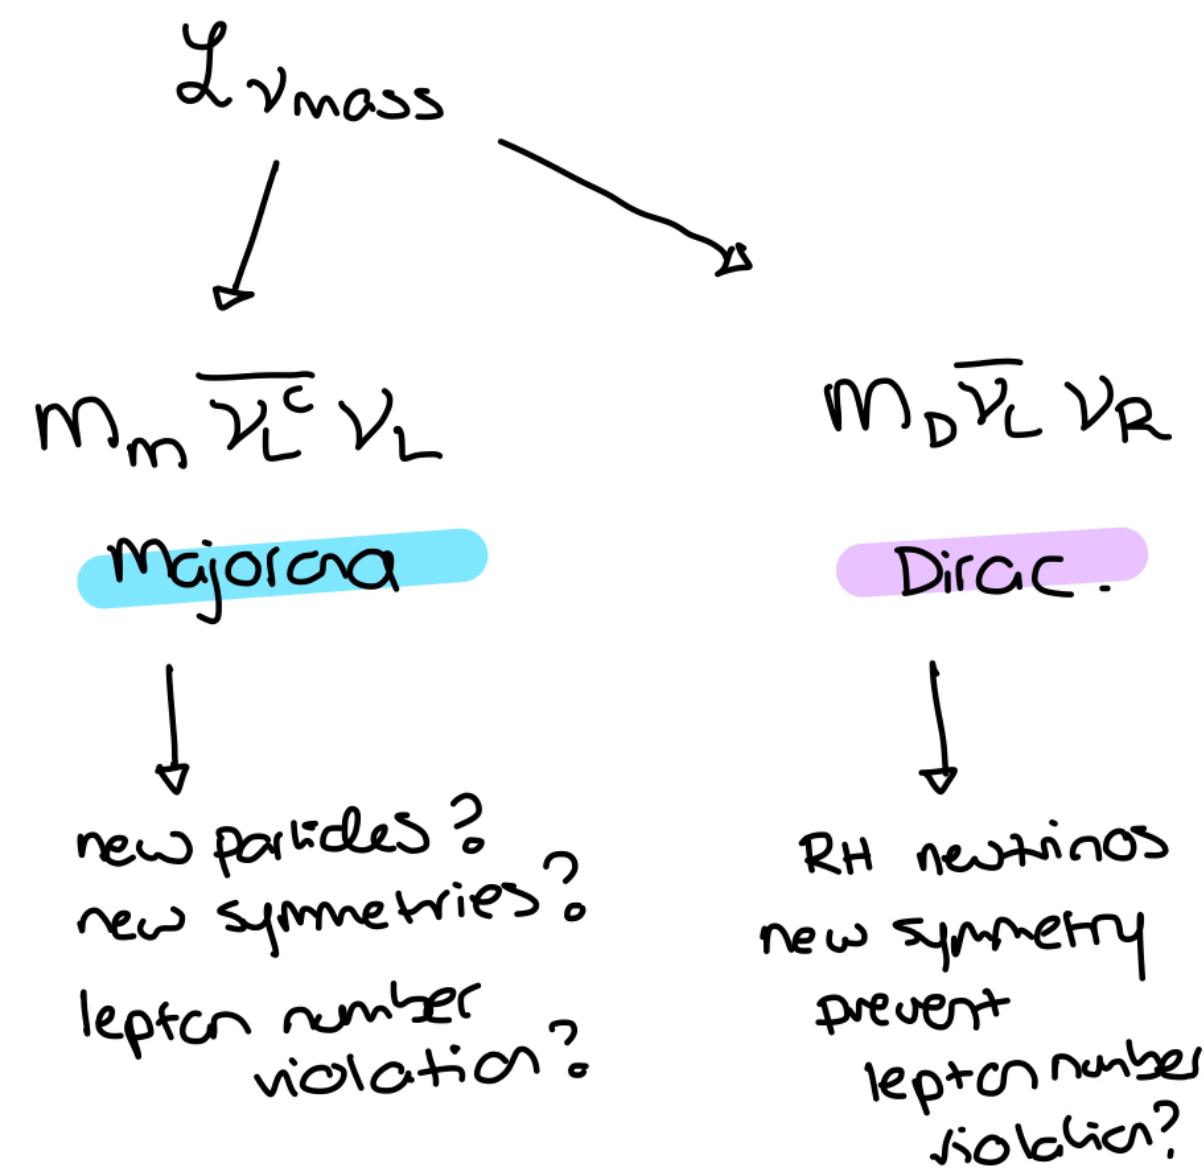 ℒ_ν mass
m_m \overline{ν_L^c} ν_L
m_D \overline{ν_L} ν_R
Majorana
Dirac.
new particles?
new symmetries?
lepton number
violation?
RH neutrinos
new symmetry
prevent
lepton number
violation?